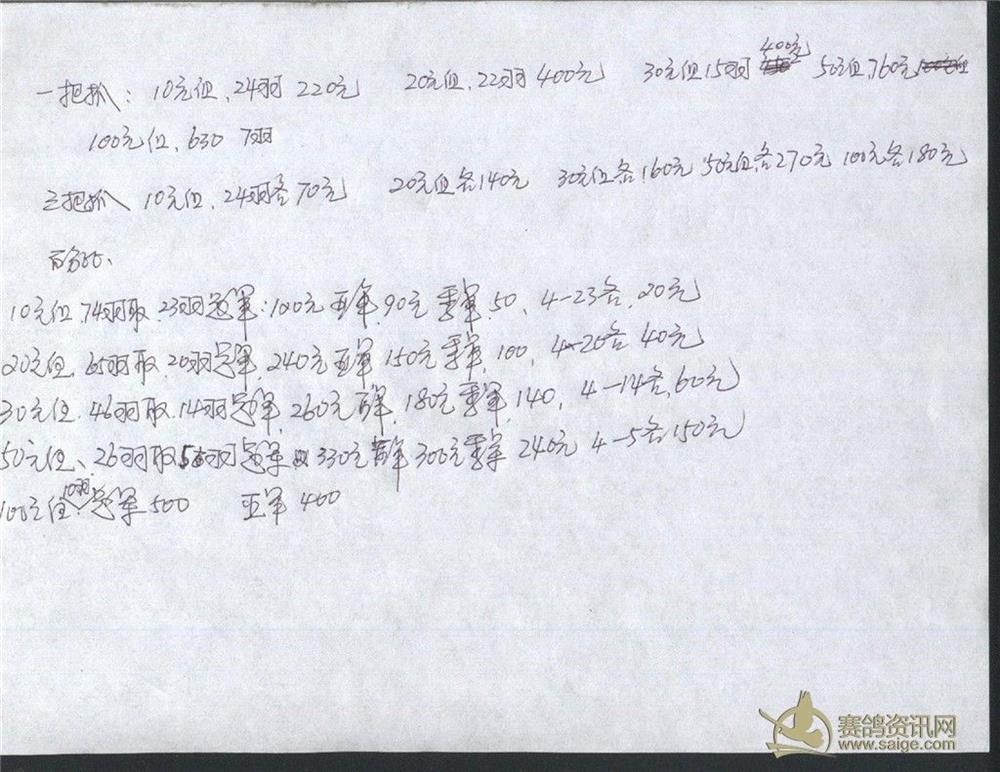 一把抓：10元组，24羽 220元 20元组，22羽 400元 30元组15羽 400元 50元组，760元
100元位，630 7羽
三把抓 10元位，24羽各70元 20元组各140元 30元位各160元 50元组各270元 100元各180元
百分比、
10元位，74羽取，23羽冠军：100元 亚军，90元 季军，50，4-23各，20元
20元位，65羽取，20羽冠军，240元 亚军 150元 季军，100，4-20各 40元
30元位，46羽取，14羽冠军，260元 亚军，180元 季军，140，4-14各，60元
50元位、26羽取 5羽冠军 330元 亚军 300元 季军 240元 4-5各 150元
100元位：10羽 冠军 500 亚军 400
赛鸽资讯网
www.saige.com